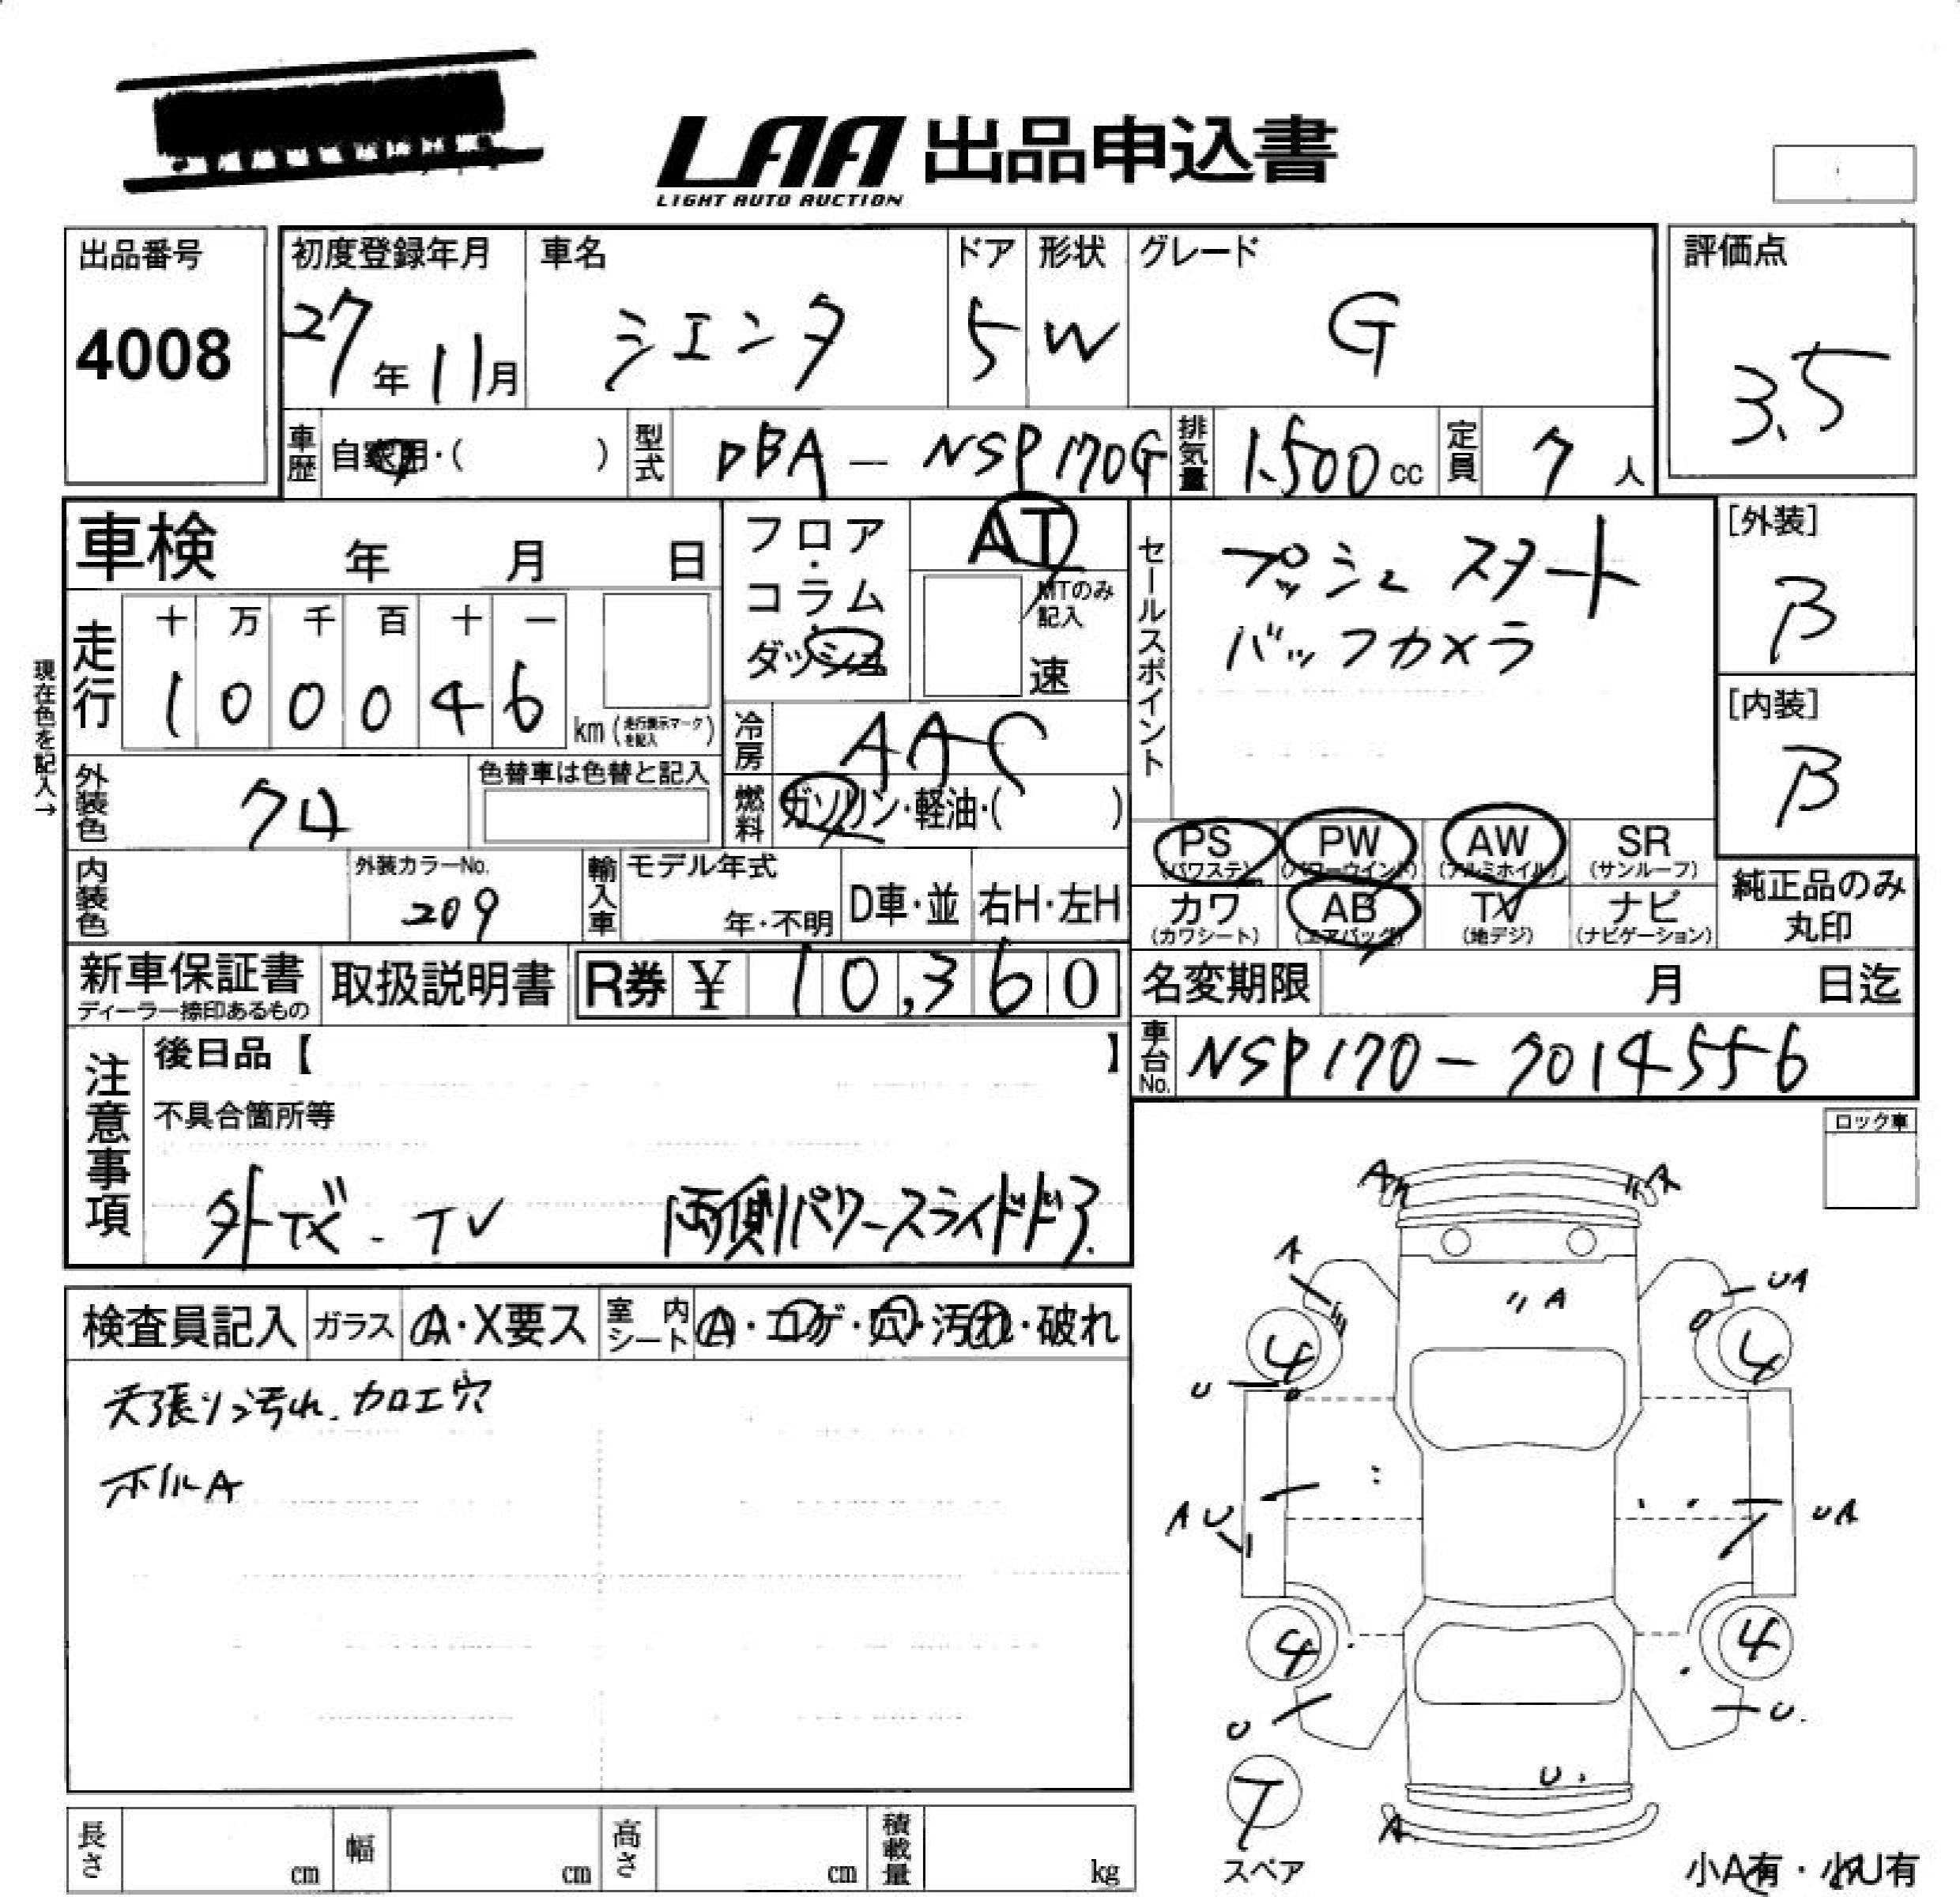 LAA 出品申込書
LIGHT AUTO AUCTION
出品番号
4008
初度登録年月
27年11月
車名
シエンタ
ドア
5
形状
W
グレード
G
評価点
3.5
車歴 自家用・( )
型式 DBA - NSP170G
排気量 1.500cc
定員 7人
車検 年 月 日
フロア・コラム・ダッシュ
AT
MTのみ記入
速
セールスポイント
プッシュスタート
バックカメラ
[外装]
B
[内装]
B
現在色を記入→
走行
十 万 千 百 十 一
1 0 0 0 4 6
km (走行表示マークを記入)
冷房 AAC
外装色 クロ
色替車は色替と記入
燃料 ガソリン・軽油・( )
PS (パワステ) PW (パワーウインド) AW (アルミホイル) SR (サンルーフ)
カワ (カワシート) AB (エアバッグ) TV (地デジ) ナビ (ナビゲーション)
純正品のみ丸印
内装色
外装カラーNo.
209
輸入車
モデル年式
年・不明
D車・並
右H・左H
新車保証書
ディーラー捺印あるもの
取扱説明書
R券 ¥ 10,360
名変期限 月 日迄
車台No. NSP170-7014556
注意事項
後日品【 】
不具合箇所等
TV 両側パワースライドドア
ロック車
検査員記入
ガラス A・X要ス
室内シート A・コゲ・穴・汚れ・破れ
天張り汚れ、カロエ穴
ホイルA
A A
A UA
A
4 4
U
AU UA
4 4
U U
U
T
A
スペア
小A有・小U有
長さ cm
幅 cm
高さ cm
積載量 kg